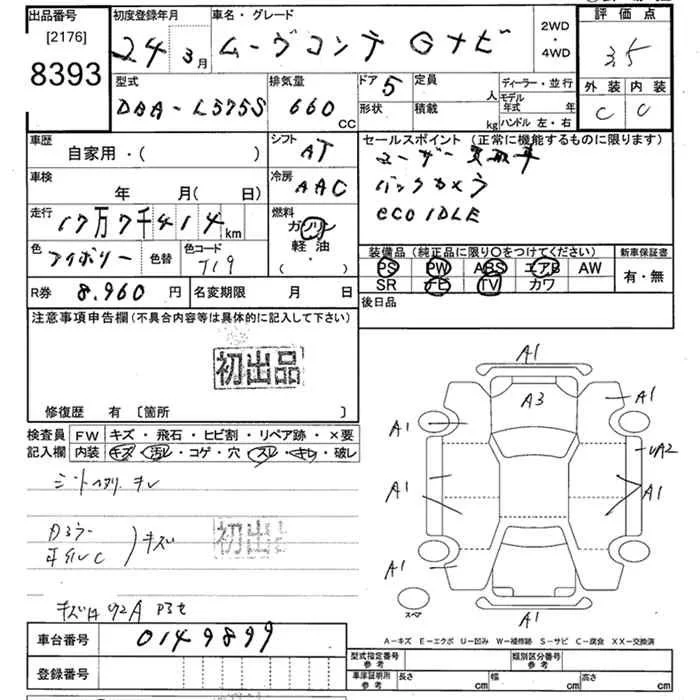 出品番号
[2176]
8393
初度登録年月
24年3月
車名・グレード
ムーヴコンテ Gナビ
2WD
・
4WD
評価点
3.5
外装 内装
C C
型式
DBA-L575S
排気量
660
CC
ドア 5
形状
定員
人
積載
kg
ディーラー・並行
モデル年式 年
ハンドル 左・右
車歴
自家用・( )
シフト
AT
セールスポイント (正常に機能するものに限ります)
ユーザー買取車
バックカメラ
eco IDLE
車検
年 月( 日)
冷房
AAC
走行
17万7千414km
燃料
ガソリン
軽油
・
色
アイボリー
色替
色コード
T19
装備品 (純正品に限り○をつけてください)
PS PW ABS エアB AW
SR FL TV カワ
新車保証書
有・無
R券 8.960円
名変期限 月 日
後日品
注意事項申告欄(不具合内容等は具体的に記入して下さい)
初出品
修復歴 有 [箇所 ]
検査員 FW キズ・飛石・ヒビ割・リペア跡・×要
記入欄 内装 キズ・汚レ・コゲ・穴・スレ・キレ・破レ
初出品
キズ
A1
A3
A1
A1
A1
A1
A1
A1
スペア
A-キズ E-エクボ U-凹み W-補修跡 S-サビ C-腐食 XX-交換済
車台番号
0149899
登録番号
型式指定番号
参考
類別区分番号
参考
車庫証明所
参考
長さ cm
幅 cm
高さ cm